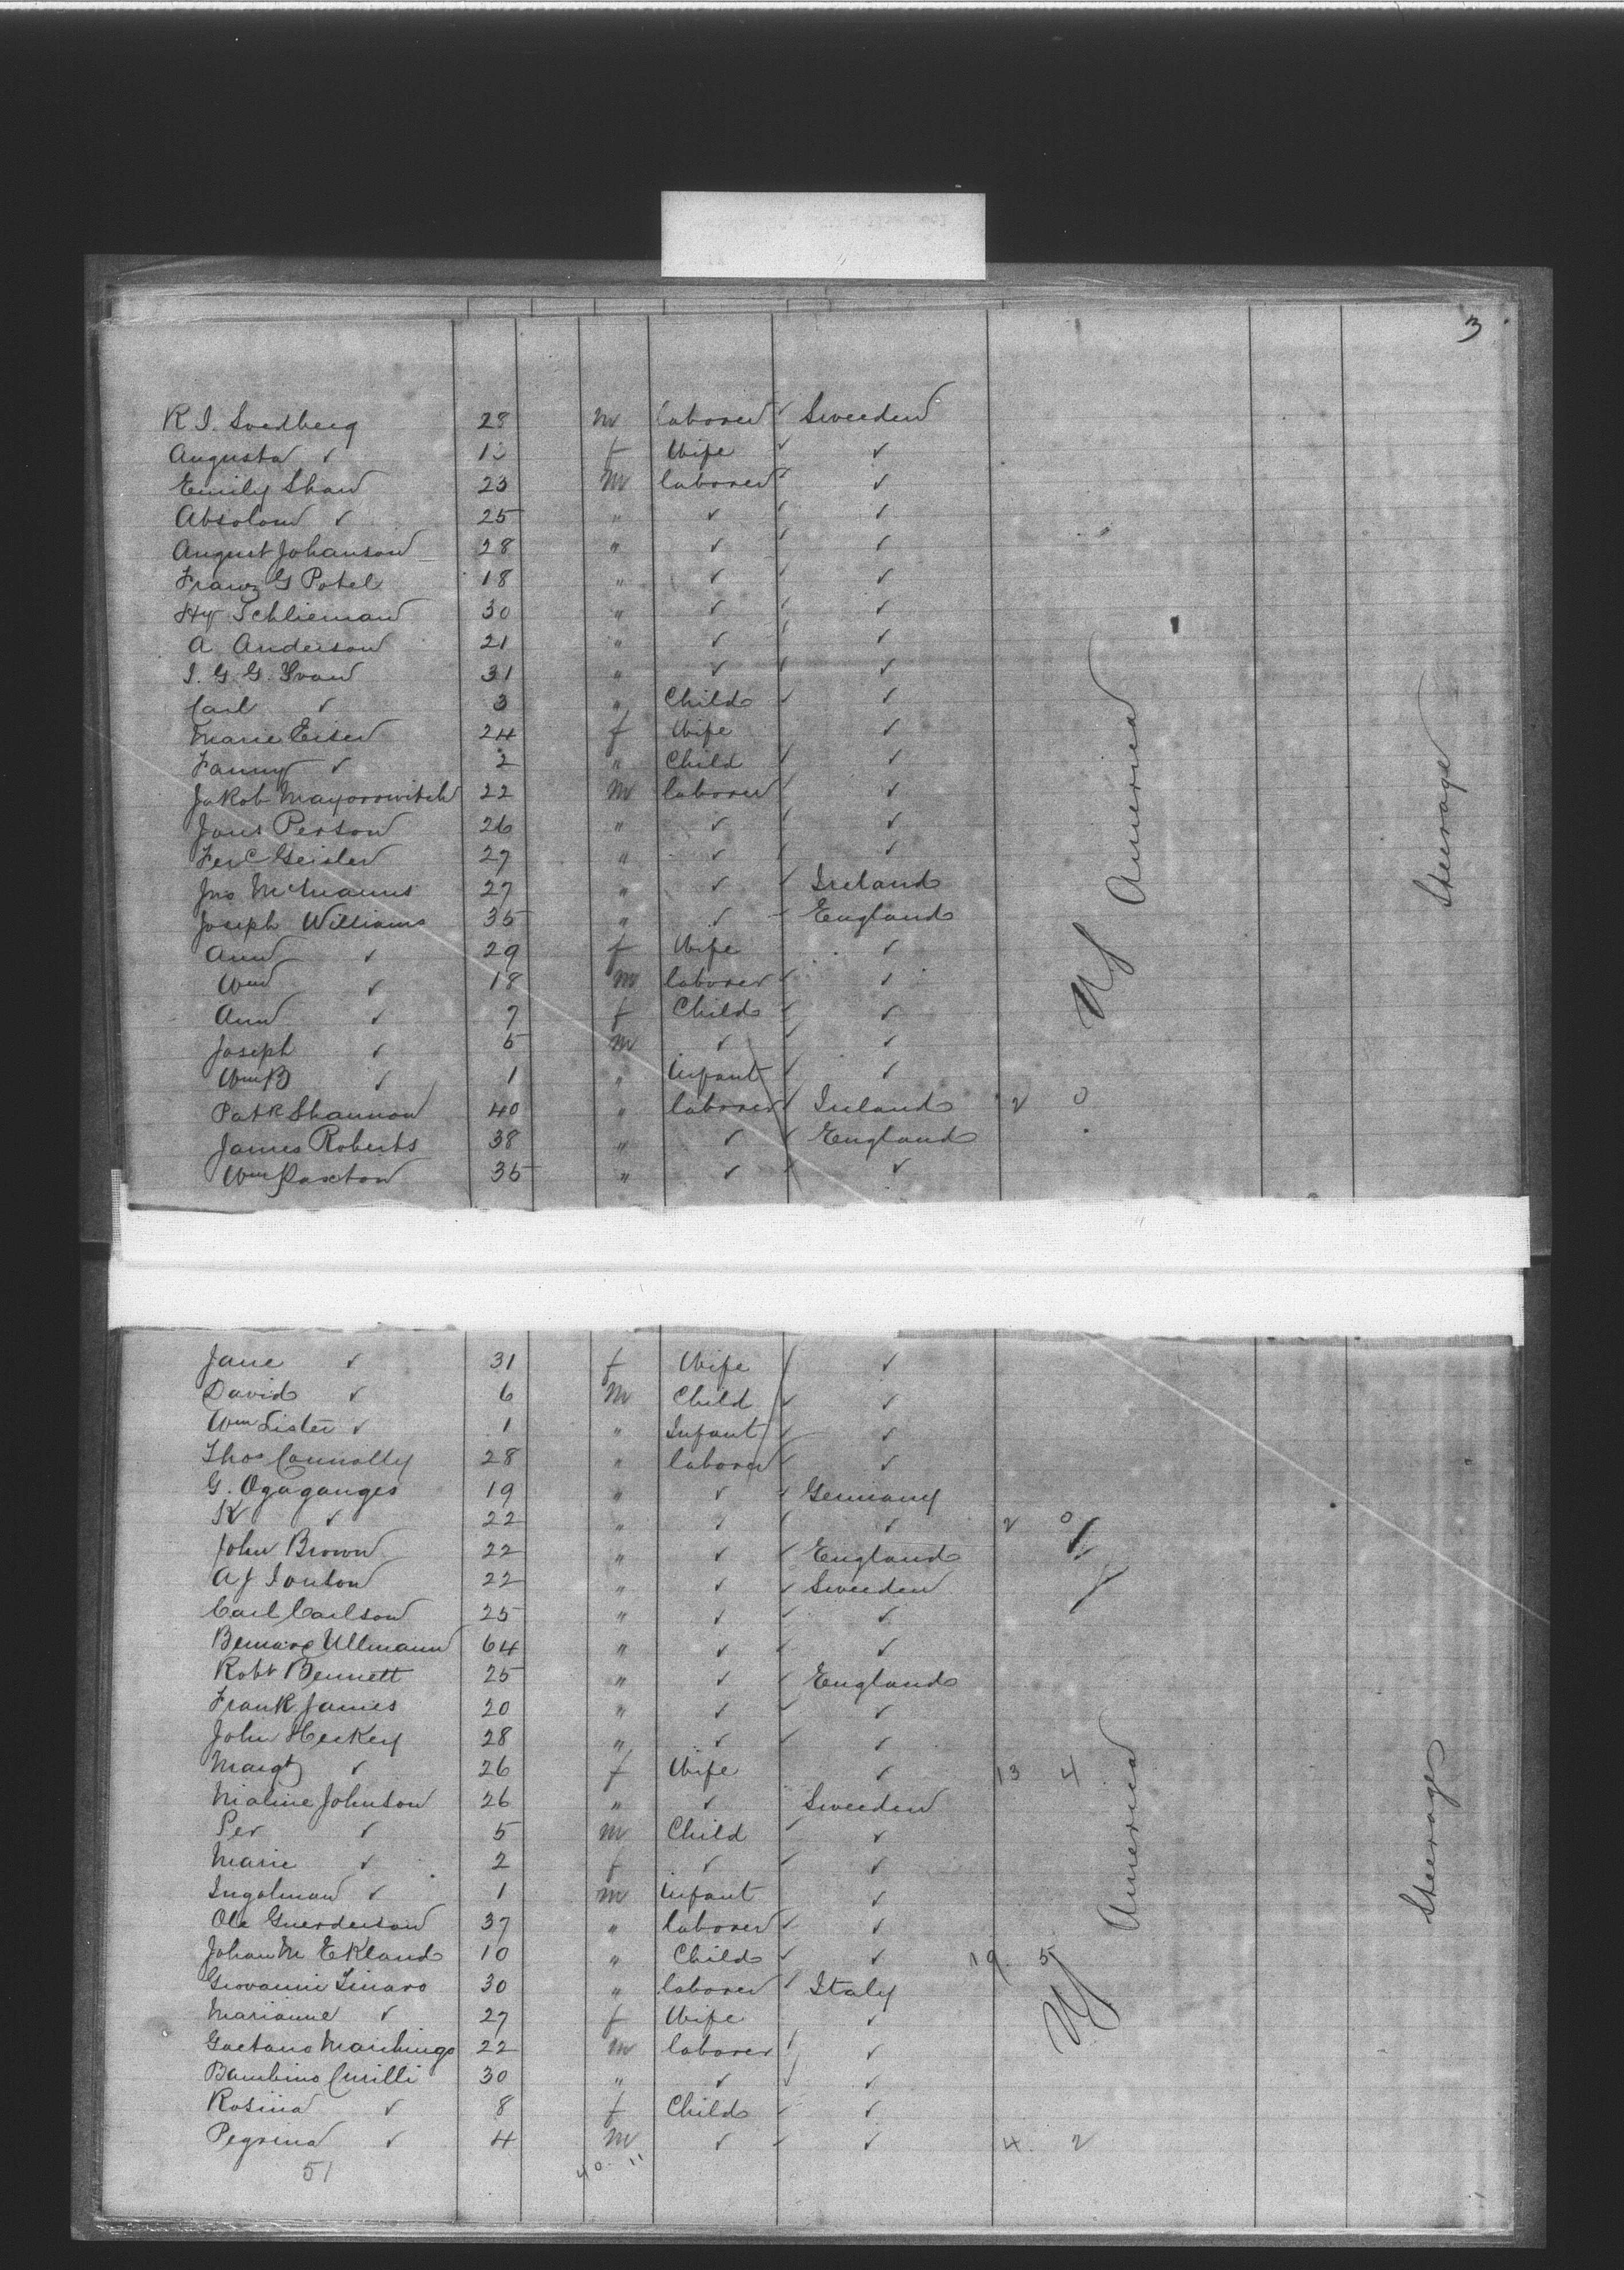 3
R I. Svedberg 28 m laborer ✓ Sweeden
Augusta ✓ f Wife ✓ ✓
Emily Shaw 23 m laborer ✓ ✓
Absolom ✓ 25 " ✓ ✓ ✓
August Johanson 28 " ✓ ✓ ✓
Franz G Patel 18 " ✓ ✓ ✓
Hy Schlieman 30 " ✓ ✓ ✓
A Anderson 21 " ✓ ✓ ✓
I. G. G. 31 " ✓ ✓ ✓
Carl ✓ 3 " Child ✓ ✓
Marie Eiser 24 f Wife ✓
Fanny ✓ 2 " Child ✓ ✓
Jakob Mayorowitch 22 m laborer ✓ ✓
Jons Person 26 " ✓ ✓ ✓
Geisler 27 " ✓ ✓ ✓
Jno McManus 27 " ✓ ✓ Ireland
Joseph Williams 35 " ✓ ✓ England
Ann ✓ 29 f Wife ✓
Wm ✓ 18 m laborer ✓ ✓
Ann ✓ 7 f Child ✓ ✓
Joseph ✓ 5 m ✓ ✓ ✓
Wm B ✓ 1 " Infant ✓ ✓
Patk Shannon 40 " laborer ✓ Ireland 2 0
James Roberts 38 " ✓ ✓ England
Wm Paxton 35 " ✓ ✓ ✓
US America
Steerage
Jane ✓ 31 f Wife ✓ ✓
David ✓ 6 m Child ✓ ✓
Wm Lister ✓ 1 " Infant ✓ ✓
Thos Connolly 28 " laborer ✓ ✓
G. Ogaganges 19 " ✓ ✓ Germany
K ✓ 22 " ✓ ✓ ✓ 2 0
John Brown 22 " ✓ ✓ England
A J 22 " ✓ ✓ Sweeden
Carl Carlson 25 " ✓ ✓ ✓
Ullmann 64 " ✓ ✓ ✓
Robt Bennett 25 " ✓ ✓ England
Frank James 20 " ✓ ✓ ✓
John Heckey 28 " ✓ ✓ ✓
Margt ✓ 26 f Wife ✓ 13 4
Maline Johnson 26 " ✓ Sweeden
Per ✓ 5 m Child ✓ ✓
Marie ✓ 2 f ✓ ✓ ✓
Ingolman ✓ 1 m Infant ✓
Ole 37 " laborer ✓ ✓
Johan M Ekland 10 " Child ✓ ✓ 19 5
Giovanni Linaro 30 " laborer ✓ Italy
Marianne ✓ 27 f Wife ✓
Gaetano 22 m laborer ✓ ✓
Bambino Cirilli 30 " ✓ ✓ ✓
Rosina ✓ 8 f Child ✓ ✓
Pegrina ✓ 4 m ✓ ✓ ✓ 4 2
51 40 11
US America
Steerage